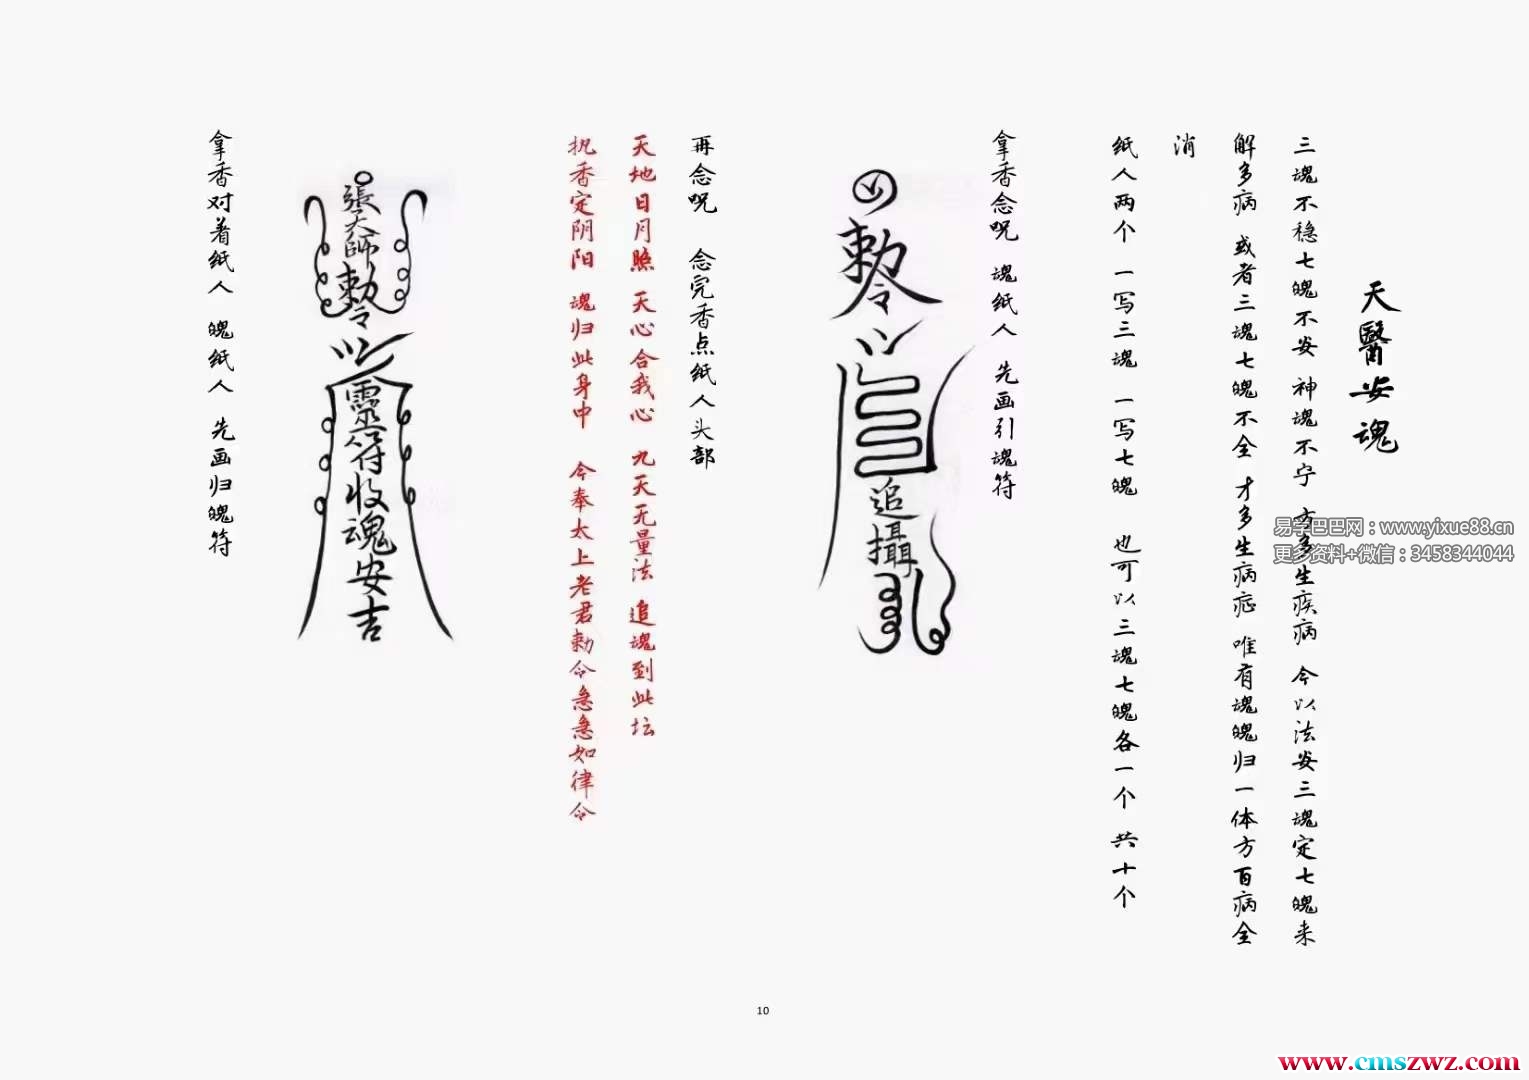 天醫安魂
三魂不稳七魄不安 神魂不宁 方多生疾病 今以法安三魂定七魄来
解多病 或者三魂七魄不全 才多生病症 唯有魂魄归一体方百病全
消
纸人两个 一写三魂 一写七魄 也可以三魂七魄各一个 共十个
拿香念咒 魂纸人 先画引魂符
敕令
追攝
再念咒 念完香点纸人头部
天地日月照 天心合我心 九天无量法 追魂到此坛
执香定阴阳 魂归此身中 今奉太上老君勅令急急如律令
張天師勅令
靈符收魂安吉
拿香对着纸人 魄纸人 先画归魄符
易学巴巴网：www.yixue88.cn
更多资料+微信：3458344044
10
www.cmszwz.com